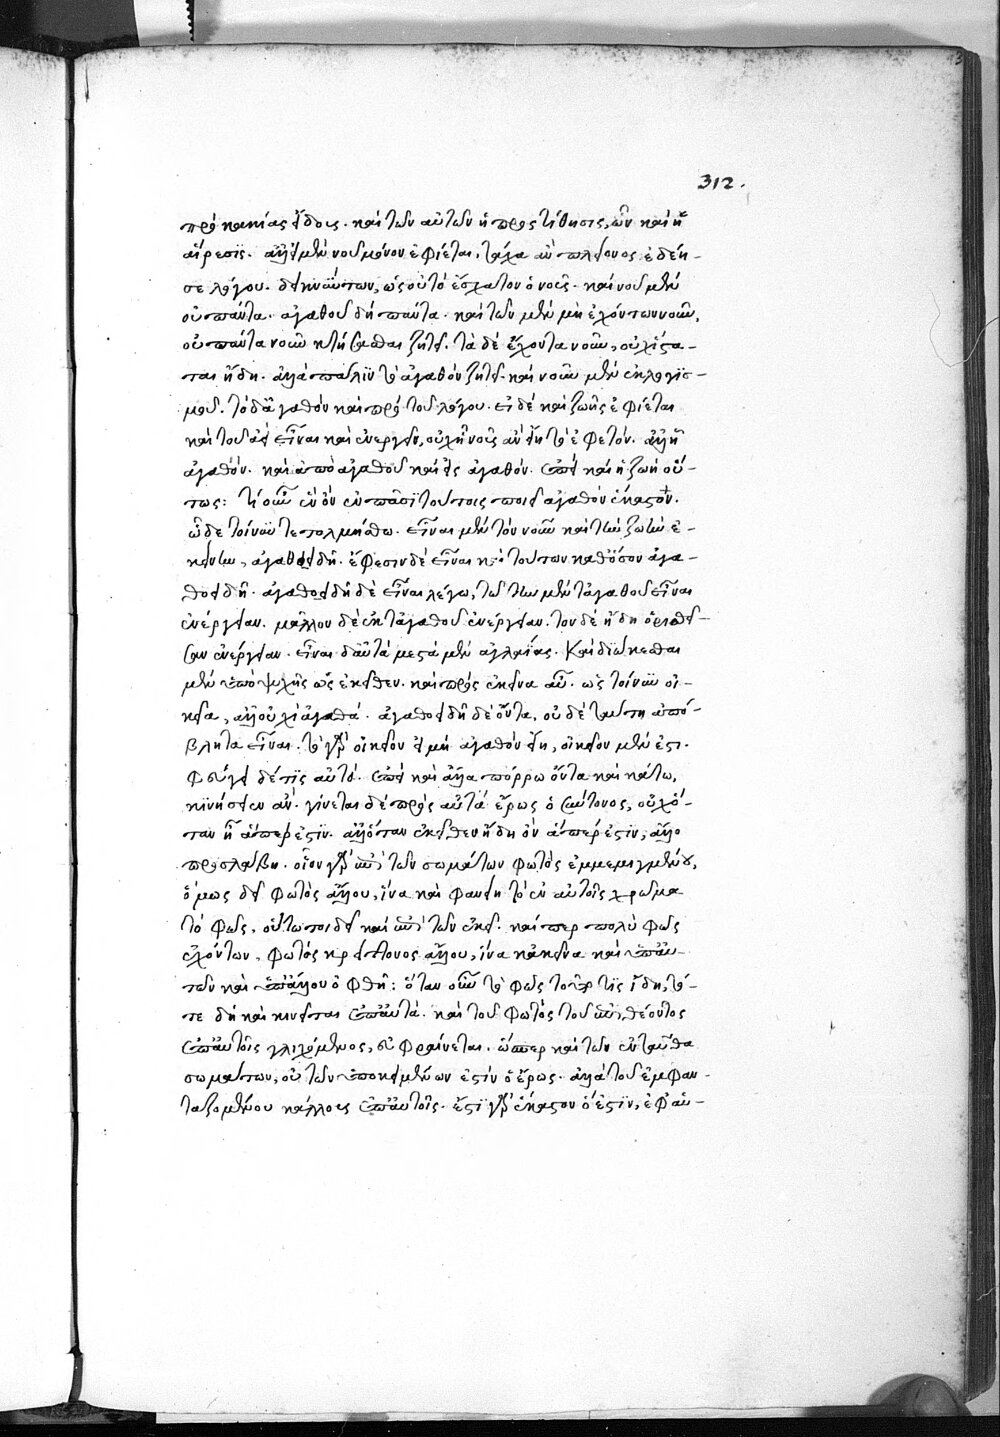 312.
πρὸ κακίας εἴδοις. καὶ τῶν αὐτῶν ἡ προστίθησις, ὧν καὶ ἡ
αἵρεσις. ἀλλ' εἰ μὲν νοῦ μόνον ἐφίεται, τάχα ἂν πλείονος ἐδέη-
σε λόγου. δεικνύντων, ὡς οὐ τὸ ἔσχατον ὁ νοῦς. καὶ νοῦ μὲν
οὐ πάντα. ἀγαθοῦ δὴ πάντα. καὶ τῶν μὲν μὴ ἐχόντων νοῦν,
οὐ πάντα νοῦν κτήσασθαι ζητεῖ. τὰ δὲ ἔχοντα νοῦν, οὐχ ἵστα-
ται ἤδη. ἀλλὰ πάλιν τὸ ἀγαθὸν ζητεῖ. καὶ νοῦν μὲν ἐκ λογισ-
μοῦ. τὸ δ' ἀγαθὸν καὶ πρὸ τοῦ λόγου. εἰ δὲ καὶ ζωῆς ἐφίεται
καὶ τοῦ ἀεὶ εἶναι καὶ ἐνεργεῖν, οὐχ ᾗ νοῦς ἂν εἴη τὸ ἐφετόν. ἀλλ' ᾗ
ἀγαθόν. καὶ ἀπὸ ἀγαθοῦ καὶ εἰς ἀγαθόν. ἐπεὶ καὶ ἡ ζωὴ οὕ-
τως: τί οὖν ἓν ὂν ἐν πᾶσι τούτοις ποιεῖ ἀγαθὸν ἕκαστον.
ὧδε τοίνυν τετολμήσθω. εἶναι μὲν τὸν νοῦν καὶ τὴν ζωὴν ἐ-
κείνην, ἀγαθοειδῆ. ἔφεσιν δὲ εἶναι καὶ τούτων καθ' ὅσον ἀγα-
θοειδῆ. ἀγαθοειδῆ δὲ εἶναι λέγω, τῷ τὴν μὲν τἀγαθοῦ εἶναι
ἐνέργειαν. μᾶλλον δὲ ἐκ τἀγαθοῦ ἐνέργειαν. τὸν δὲ ἤδη ὁρισθεῖ-
σαν ἐνέργειαν. εἶναι δ' αὐτὰ μεστὰ μὲν ἀγλαΐας. καὶ διώκεσθαι
μὲν ὑπὸ ψυχῆς ὡς ἐκεῖθεν. καὶ πρὸς ἐκεῖνα αὖ. ὡς τοίνυν οἰ-
κεῖα, ἀλλ' οὐχὶ ἀγαθά. ἀγαθοειδῆ δὲ ὄντα, οὐδὲ ταύτῃ ἀπό-
βλητα εἶναι. τὸ γὰρ οἰκεῖον εἰ μὴ ἀγαθὸν εἴη, οἰκεῖον μὲν ἐστι.
φεύγει δέ τις αὐτό. ἐπεὶ καὶ ἄλλα πόρρω ὄντα καὶ κάτω,
κινήσειεν ἄν. γίνεται δὲ πρὸς αὐτὰ ἔρως ὁ σύντονος, οὐχ ὅ-
ταν ᾖ ἅπερ ἐστίν. ἀλλ' ὅταν ἐκεῖθεν ἤδη ὂν ἅπερ ἐστίν, ἄλλο
προσλάβῃ. οἷον γὰρ ἐπὶ τῶν σωμάτων φωτὸς ἐμμεμιγμένου,
ὅμως δεῖ φωτὸς ἄλλου, ἵνα καὶ φανείη τὸ ἐν αὐτοῖς χρῶμα
τὸ φῶς, οὕτω τοι δεῖ καὶ ἐπὶ τῶν ἐκεῖ. καίπερ πολὺ φῶς
ἐχόντων, φωτὸς κρείττονος ἄλλου, ἵνα κἀκεῖνα καὶ ὑπ' αὐ-
τῶν καὶ ὑπ' ἄλλου ὀφθῇ: ὅταν οὖν τὸ φῶς τοῦτό τις ἴδῃ, τό-
τε δὴ καὶ κινεῖται ἐπ' αὐτά. καὶ τοῦ φωτὸς τοῦ ἐπιθέοντος
ἐπ' αὐτοῖς γλιχόμενος, εὐφραίνεται. ὥσπερ καὶ τῶν ἐνταῦθα
σωμάτων, οὐ τῶν ὑποκειμένων ἐστὶν ὁ ἔρως. ἀλλὰ τοῦ ἐμφαν-
ταζομένου κάλλους ἐπ' αὐτοῖς. ἔστι γὰρ ἕκαστον ὅ ἐστιν, ἐφ' αὑ-